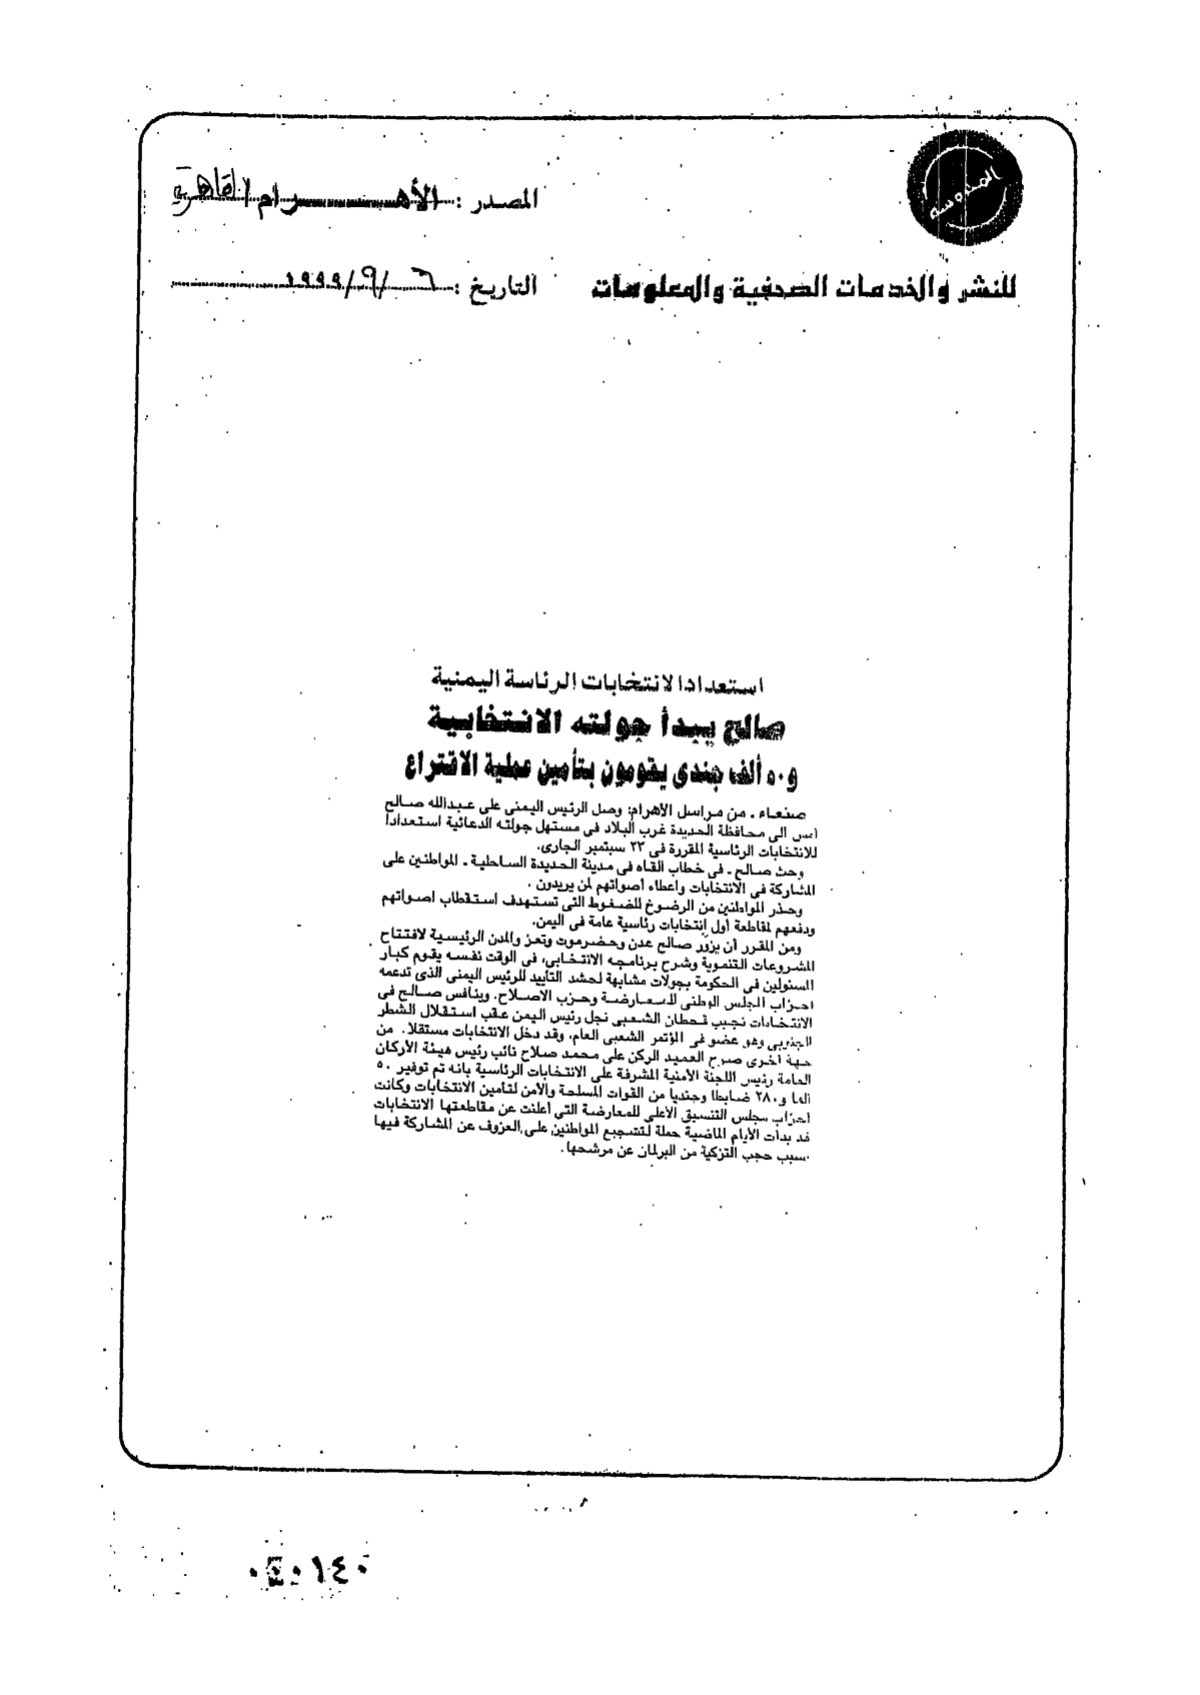 المصدر : الأهـــرام القاهرة
للنشر والخدمات الصحفية والمعلومات
التاريخ : ٦ / ٩ / ١٩٩٩
استعدادا لانتخابات الرئاسة اليمنية
صالح يبدأ جولته الانتخابية
و٥٠ ألف جندى يقومون بتأمين عملية الاقتراع
صنعاء . من مراسل الأهرام: وصل الرئيس اليمنى على عبدالله صالح
أمس الى محافظة الحديدة غرب البلاد فى مستهل جولته الدعائية استعدادا
للانتخابات الرئاسية المقررة فى ٢٣ سبتمبر الجارى.
وحث صالح . فى خطاب القاه فى مدينة الحديدة الساحلية . المواطنين على
المشاركة فى الانتخابات واعطاء أصواتهم لمن يريدون .
وحذر المواطنين من الرضوخ للضغوط التى تستهدف استقطاب اصواتهم
ودفعهم لمقاطعة أول إنتخابات رئاسية عامة فى اليمن.
ومن المقرر أن يزور صالح عدن وحضرموت وتعز والمدن الرئيسية لافتتاح
المشروعات التنموية وشرح برنامجه الانتخابى، فى الوقت نفسه يقوم كبار
المسئولين فى الحكومة بجولات مشابهة لحشد التأييد للرئيس اليمنى الذى تدعمه
احزاب المجلس الوطنى للمعارضة وحزب الاصلاح. وينافس صالح فى
الانتخابات نجيب قحطان الشعبى نجل رئيس اليمن عقب استقلال الشطر
الجنوبى وهو عضو فى المؤتمر الشعبى العام، وقد دخل الانتخابات مستقلا. من
جهة أخرى صرح العميد الركن على محمد صلاح نائب رئيس هيئة الأركان
العامة رئيس اللجنة الأمنية المشرفة على الانتخابات الرئاسية بانه تم توفير ٥٠
ألفا و٢٨٠ ضابطا وجنديا من القوات المسلحة والأمن لتامين الانتخابات وكانت
أحزاب مجلس التنسيق الأعلى للمعارضة التى أعلنت عن مقاطعتها الانتخابات
قد بدأت الأيام الماضية حملة لتشجيع المواطنين على العزوف عن المشاركة فيها
بسبب حجب التزكية من البرلمان عن مرشحها.